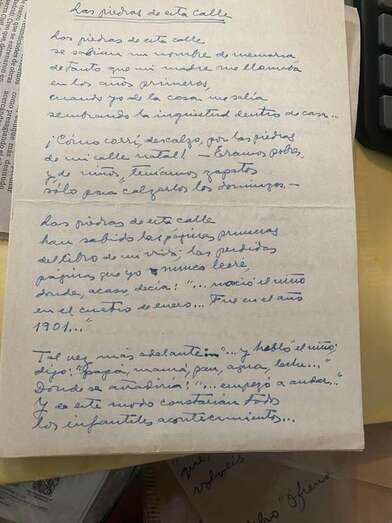 Las piedras de esta calle
Las piedras de esta calle
se sabían mi nombre de memoria
de tanto que mi madre me llamaba
en los años primeros,
cuando yo de la casa me salía
sembrando la inquietud dentro de casa...
¡Cómo corrí, descalzo, por las piedras
de mi calle natal! - Éramos pobres
y, de niños, teníamos zapatos
sólo para calzarlos los domingos. -
Las piedras de esta calle
han sabido las páginas primeras
del libro de mi vida; las perdidas
páginas que yo nunca leeré,
donde, acaso, decía: "... nació el niño
en el cuatro de enero... Fue en el año
1901..."
Tal vez más adelante: "... y habló el niño:
digo: "papá, mamá, pan, agua, leche..."
Donde se añadiría: "... empezó a andar..."
Y de este modo constarían todos
los infantiles acontecimientos...
que
volvéis
"Ofrenda